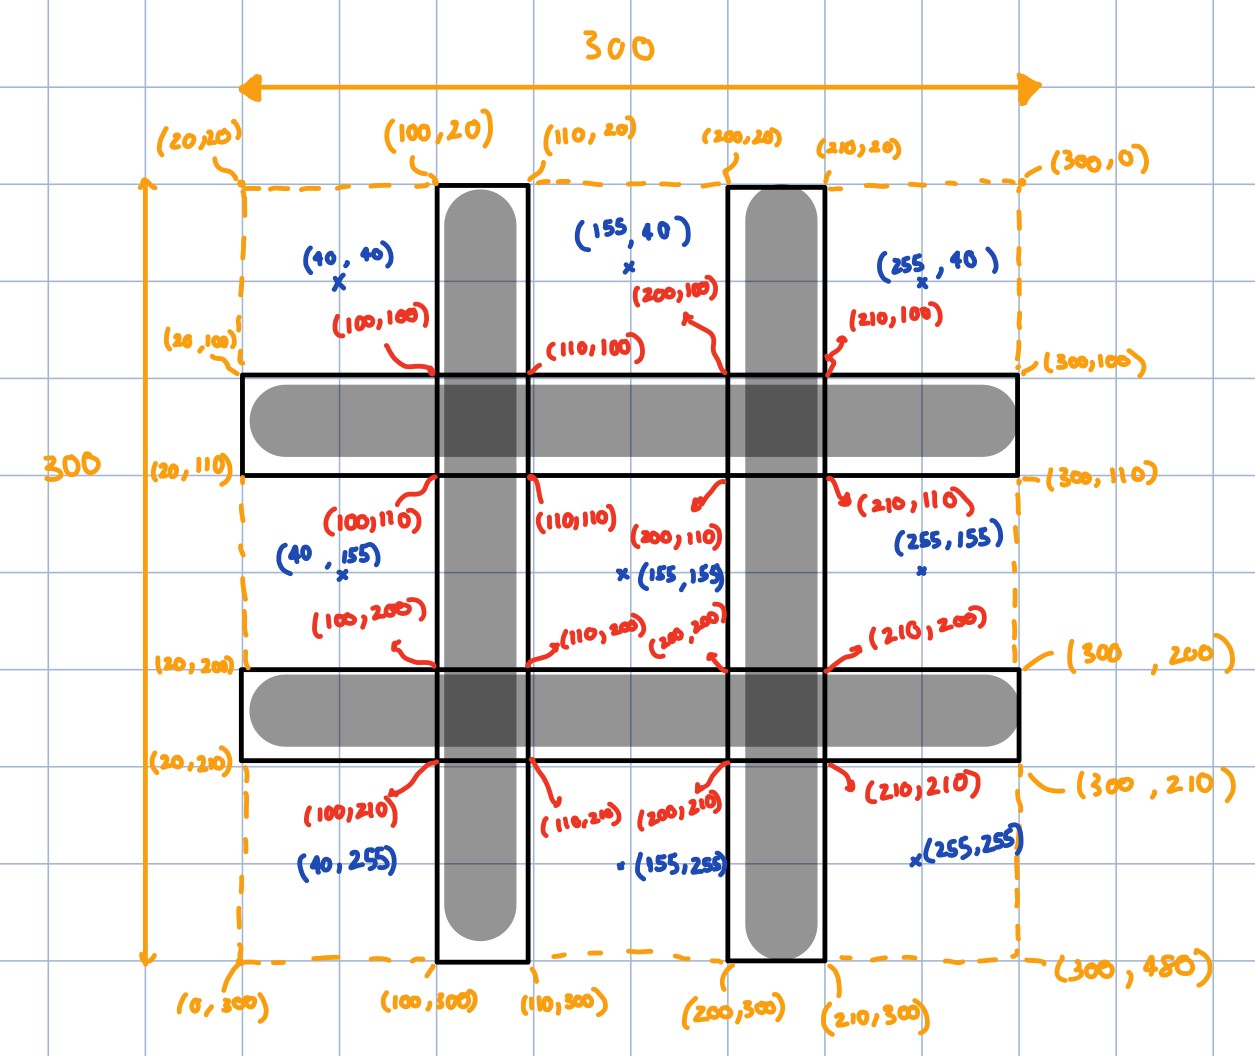 300
(20,20)
(100,20)
(110,20)
(200,20)
(210,20)
(300,0)
(40,40)
(155,40)
(255,40)
(100,100)
(200,100)
(210,100)
(20,100)
(110,100)
(300,100)
300
(20,110)
(300,110)
(100,110)
(110,110)
(200,110)
(210,110)
(40,155)
(155,155)
(255,155)
(100,200)
(110,200)
(200,200)
(210,200)
(20,200)
(300,200)
(20,210)
(300,210)
(100,210)
(110,210)
(200,210)
(210,210)
(40,255)
(155,255)
(255,255)
(0,300)
(100,300)
(110,300)
(200,300)
(210,300)
(300,480)